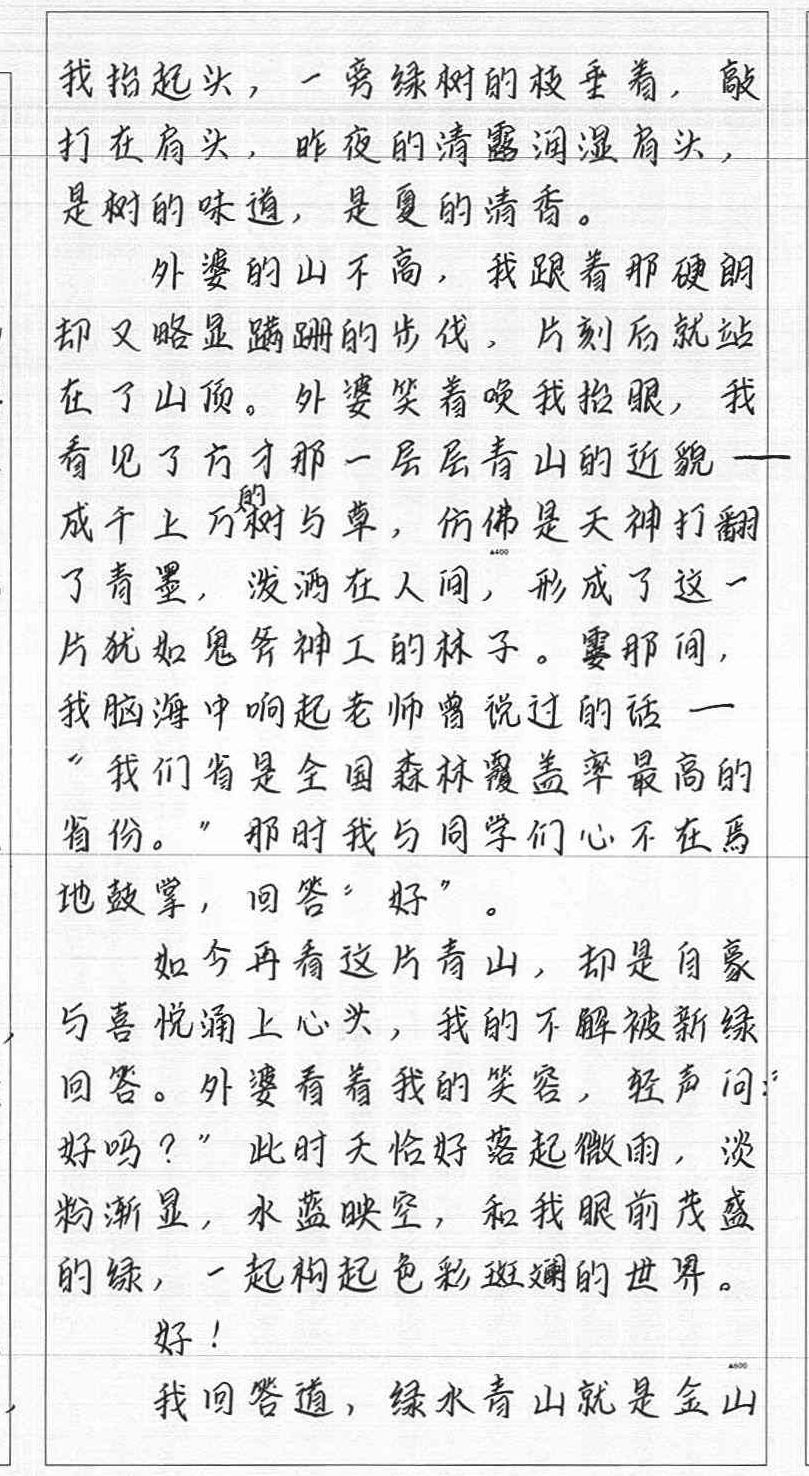 我抬起头，一旁绿树的枝垂着，敲
打在肩头，昨夜的清露润湿肩头，
是树的味道，是夏的清香。
外婆的山不高，我跟着那硬朗
却又略显蹒跚的步伐，片刻后就站
在了山顶。外婆笑着唤我抬眼，我
看见了方才那一层层青山的近貌——
成千上万的树与草，仿佛是天神打翻
▲400
了青墨，泼洒在人间，形成了这一
片犹如鬼斧神工的林子。霎那间，
我脑海中响起老师曾说过的话—
“我们省是全国森林覆盖率最高的
省份。”那时我与同学们心不在焉
地鼓掌，回答“好”。
如今再看这片青山，却是自豪
与喜悦涌上心头，我的不解被新绿
回答。外婆看着我的笑容，轻声问：“
好吗？”此时天恰好落起微雨，淡
粉渐显，水蓝映空，和我眼前茂盛
的绿，一起构起色彩斑斓的世界。
好！
▲600
我回答道，绿水青山就是金山